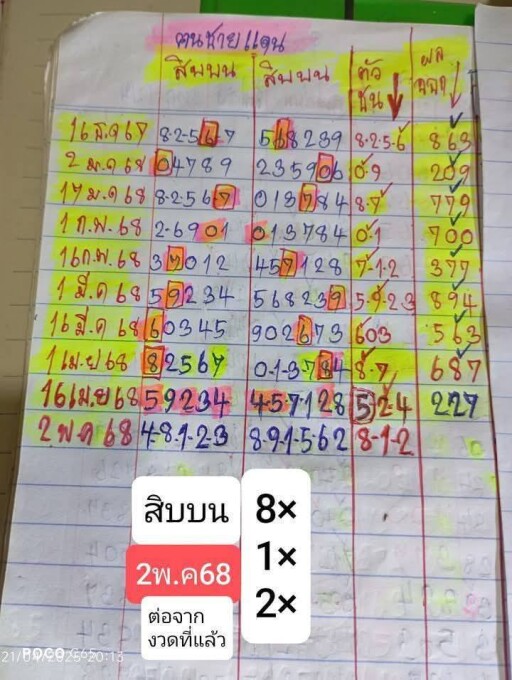 คนชายแดน
สิบบน สิบบน ตัวชน ผลออก
16 ธ.ค 67 8-2-5-6-7 568239 8-2-5-6 863
2 ม.ค 68 04789 235906 0-9 209
17 ม.ค 68 8-2-567 013784 8-7 779
1 ก.พ. 68 2-6901 013784 0-1 700
16 ก.พ. 68 37012 457128 7-1-2 377
1 มี.ค 68 59234 568239 5-9-2-3 894
16 มี.ค 68 60345 902673 603 563
1 เม.ย 68 82567 0-1-3784 8-7 687
16 เม.ย 68 59234 457128 5-2-4 227
2 พ.ค 68 4-8-1-2-3 8-9-1-5-62 8-1-2
สิบบน 8×
2พ.ค68 1×
2×
ต่อจาก
งวดที่แล้ว
POCO C65
21/04/2025 20:13